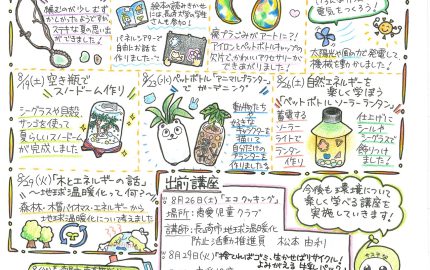 編むのが少しむず
かしかったようですが、
ステキな夏の思い出
ができました
絵本の読みきかせ
には、長崎大学の学生
さんも参加!
パネルシアターで
自由にお話を
作りました
アイロンとペットボトルキャップの
できあがりました!
電気をつくろう!
太陽光や風の力で発電して、
機械を動かしました!
8/19(土)空き瓶で
スノードーム作り
シーグラスや貝殻、
サンゴを使って
夏らしいスノードーム
が完成しました
8/23(水)ペットボトル「アニマルプランター」
で ガーデニング
動物たち
好きな
キャラクターを
描いて
自分だけの
プランターを
作りました
8/26(土)自然エネルギーを
楽しく学ぼう
「ペットボトルソーラーランタン」
蓄電する
ソーラー
ライトで
ランタン
作り
仕上げに
シールや
シーグラスで
飾りつけ
ました!
8/29(火)「木とエネルギーの話」
〜地球温暖化って何?〜
森林・木質バイオマス・エネルギー
から地球温暖化について考えました
出前講座
8月26日(土)「エコクッキング」
場所:寿童児童クラブ
講師:長崎市地球温暖化
防止活動推進員 松本由利
8月29日(火)「捨てればゴミ、生かせばリサイクル!
よみがえる牛乳パック」
今後も環境について
楽しく学べる講座を
実施していきます!